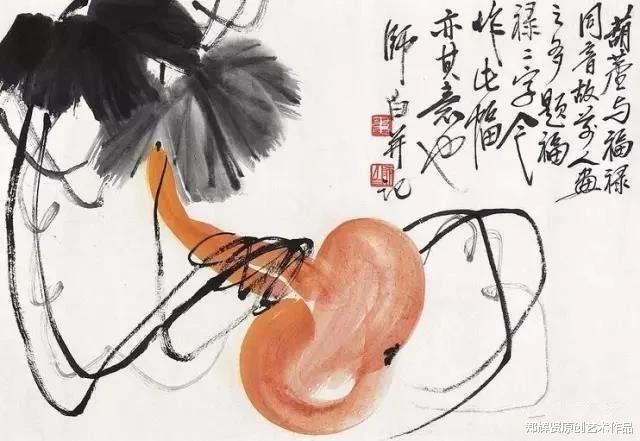 葫蘆与福禄
同音故前人畫
之多題福
禄二字今
作此幅
亦其意也
師白并记
原创艺术作品